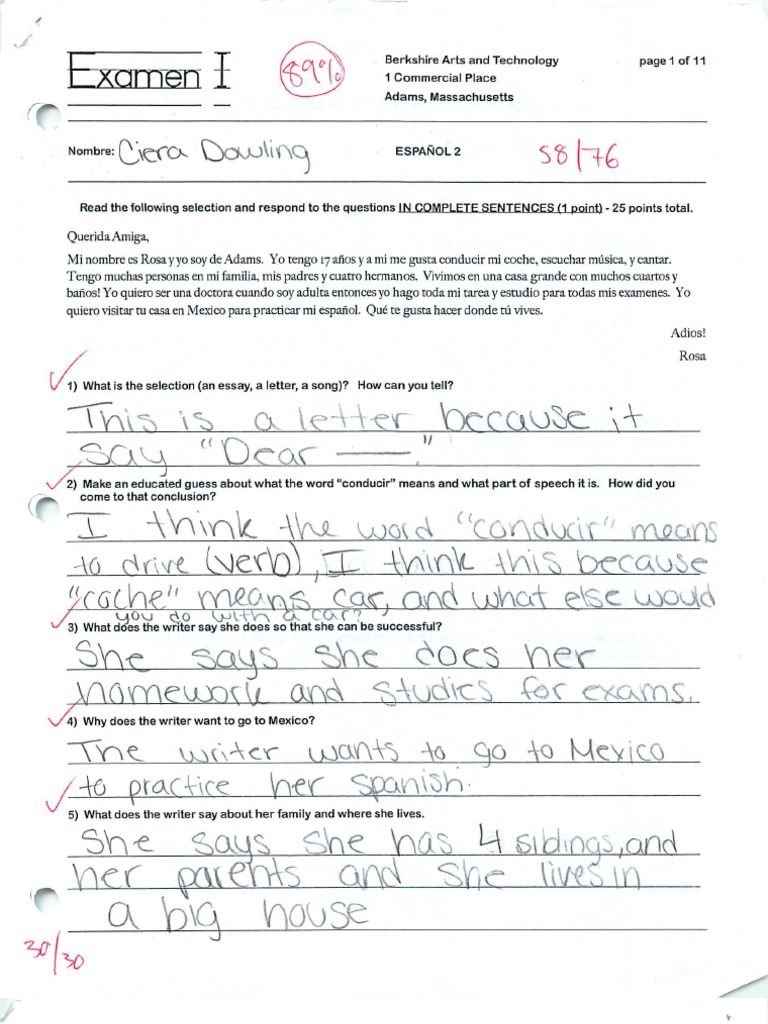 Examen I
89%
Berkshire Arts and Technology
1 Commercial Place
Adams, Massachusetts
page 1 of 11
Nombre: Ciera Dowling
ESPAÑOL 2
58/76
Read the following selection and respond to the questions IN COMPLETE SENTENCES (1 point) - 25 points total.
Querida Amiga,
Mi nombre es Rosa y yo soy de Adams. Yo tengo 17 años y a mi me gusta conducir mi coche, escuchar música, y cantar.
Tengo muchas personas en mi familia, mis padres y cuatro hermanos. Vivimos en una casa grande con muchos cuartos y
baños! Yo quiero ser una doctora cuando soy adulta entonces yo hago toda mi tarea y estudio para todas mis examenes. Yo
quiero visitar tu casa en Mexico para practicar mi español. Qué te gusta hacer donde tú vives.
Adios!
Rosa
1) What is the selection (an essay, a letter, a song)? How can you tell?
This is a letter because it
say "Dear —."
2) Make an educated guess about what the word "conducir" means and what part of speech it is. How did you
come to that conclusion?
I think the word "conducir" means
to drive (verb), I think this because
"coche" means car, and what else would
you do with a car?
3) What does the writer say she does so that she can be successful?
She says she does her
homework and studies for exams.
4) Why does the writer want to go to Mexico?
The writer wants to go to Mexico
to practice her Spanish.
5) What does the writer say about her family and where she lives.
She says she has 4 siblings, and
her parents and she lives in
a big house
30/30